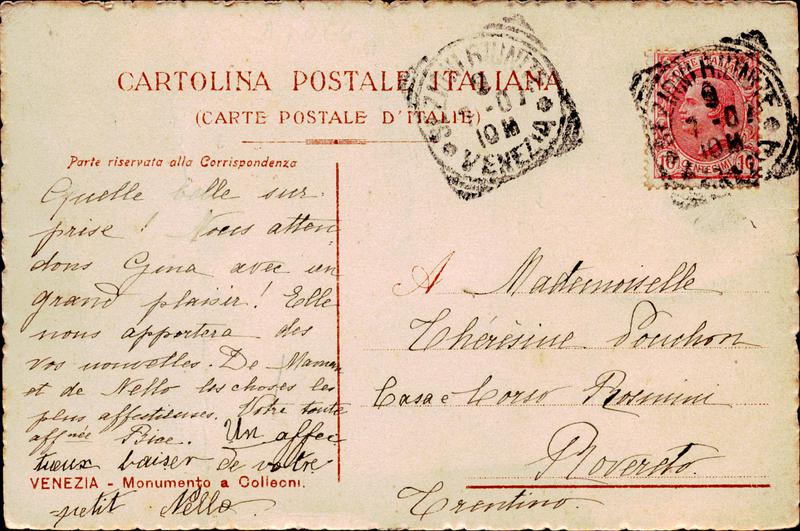 CARTOLINA POSTALE ITALIANA
(CARTE POSTALE D'ITALIE)
Parte riservata alla Corrispondenza
Quelle belle sur-
prise ! Nous atten
dons Gina avec un
grand plaisir ! Elle
nous apportera des
vos nouvelles. De Maman
et de Nello les choses les
plus affectueuses. Votre toute
affnée Bice. Un affec
tueux baiser de votre
VENEZIA - Monumento a Colleoni.
petit Nello
VENEZIA
10 M
10 CENTESIMI 10
10 M
A Mademoiselle
Thérèsine Pouchon
Casa e Corso Rosmini
Rovereto
Trentino.